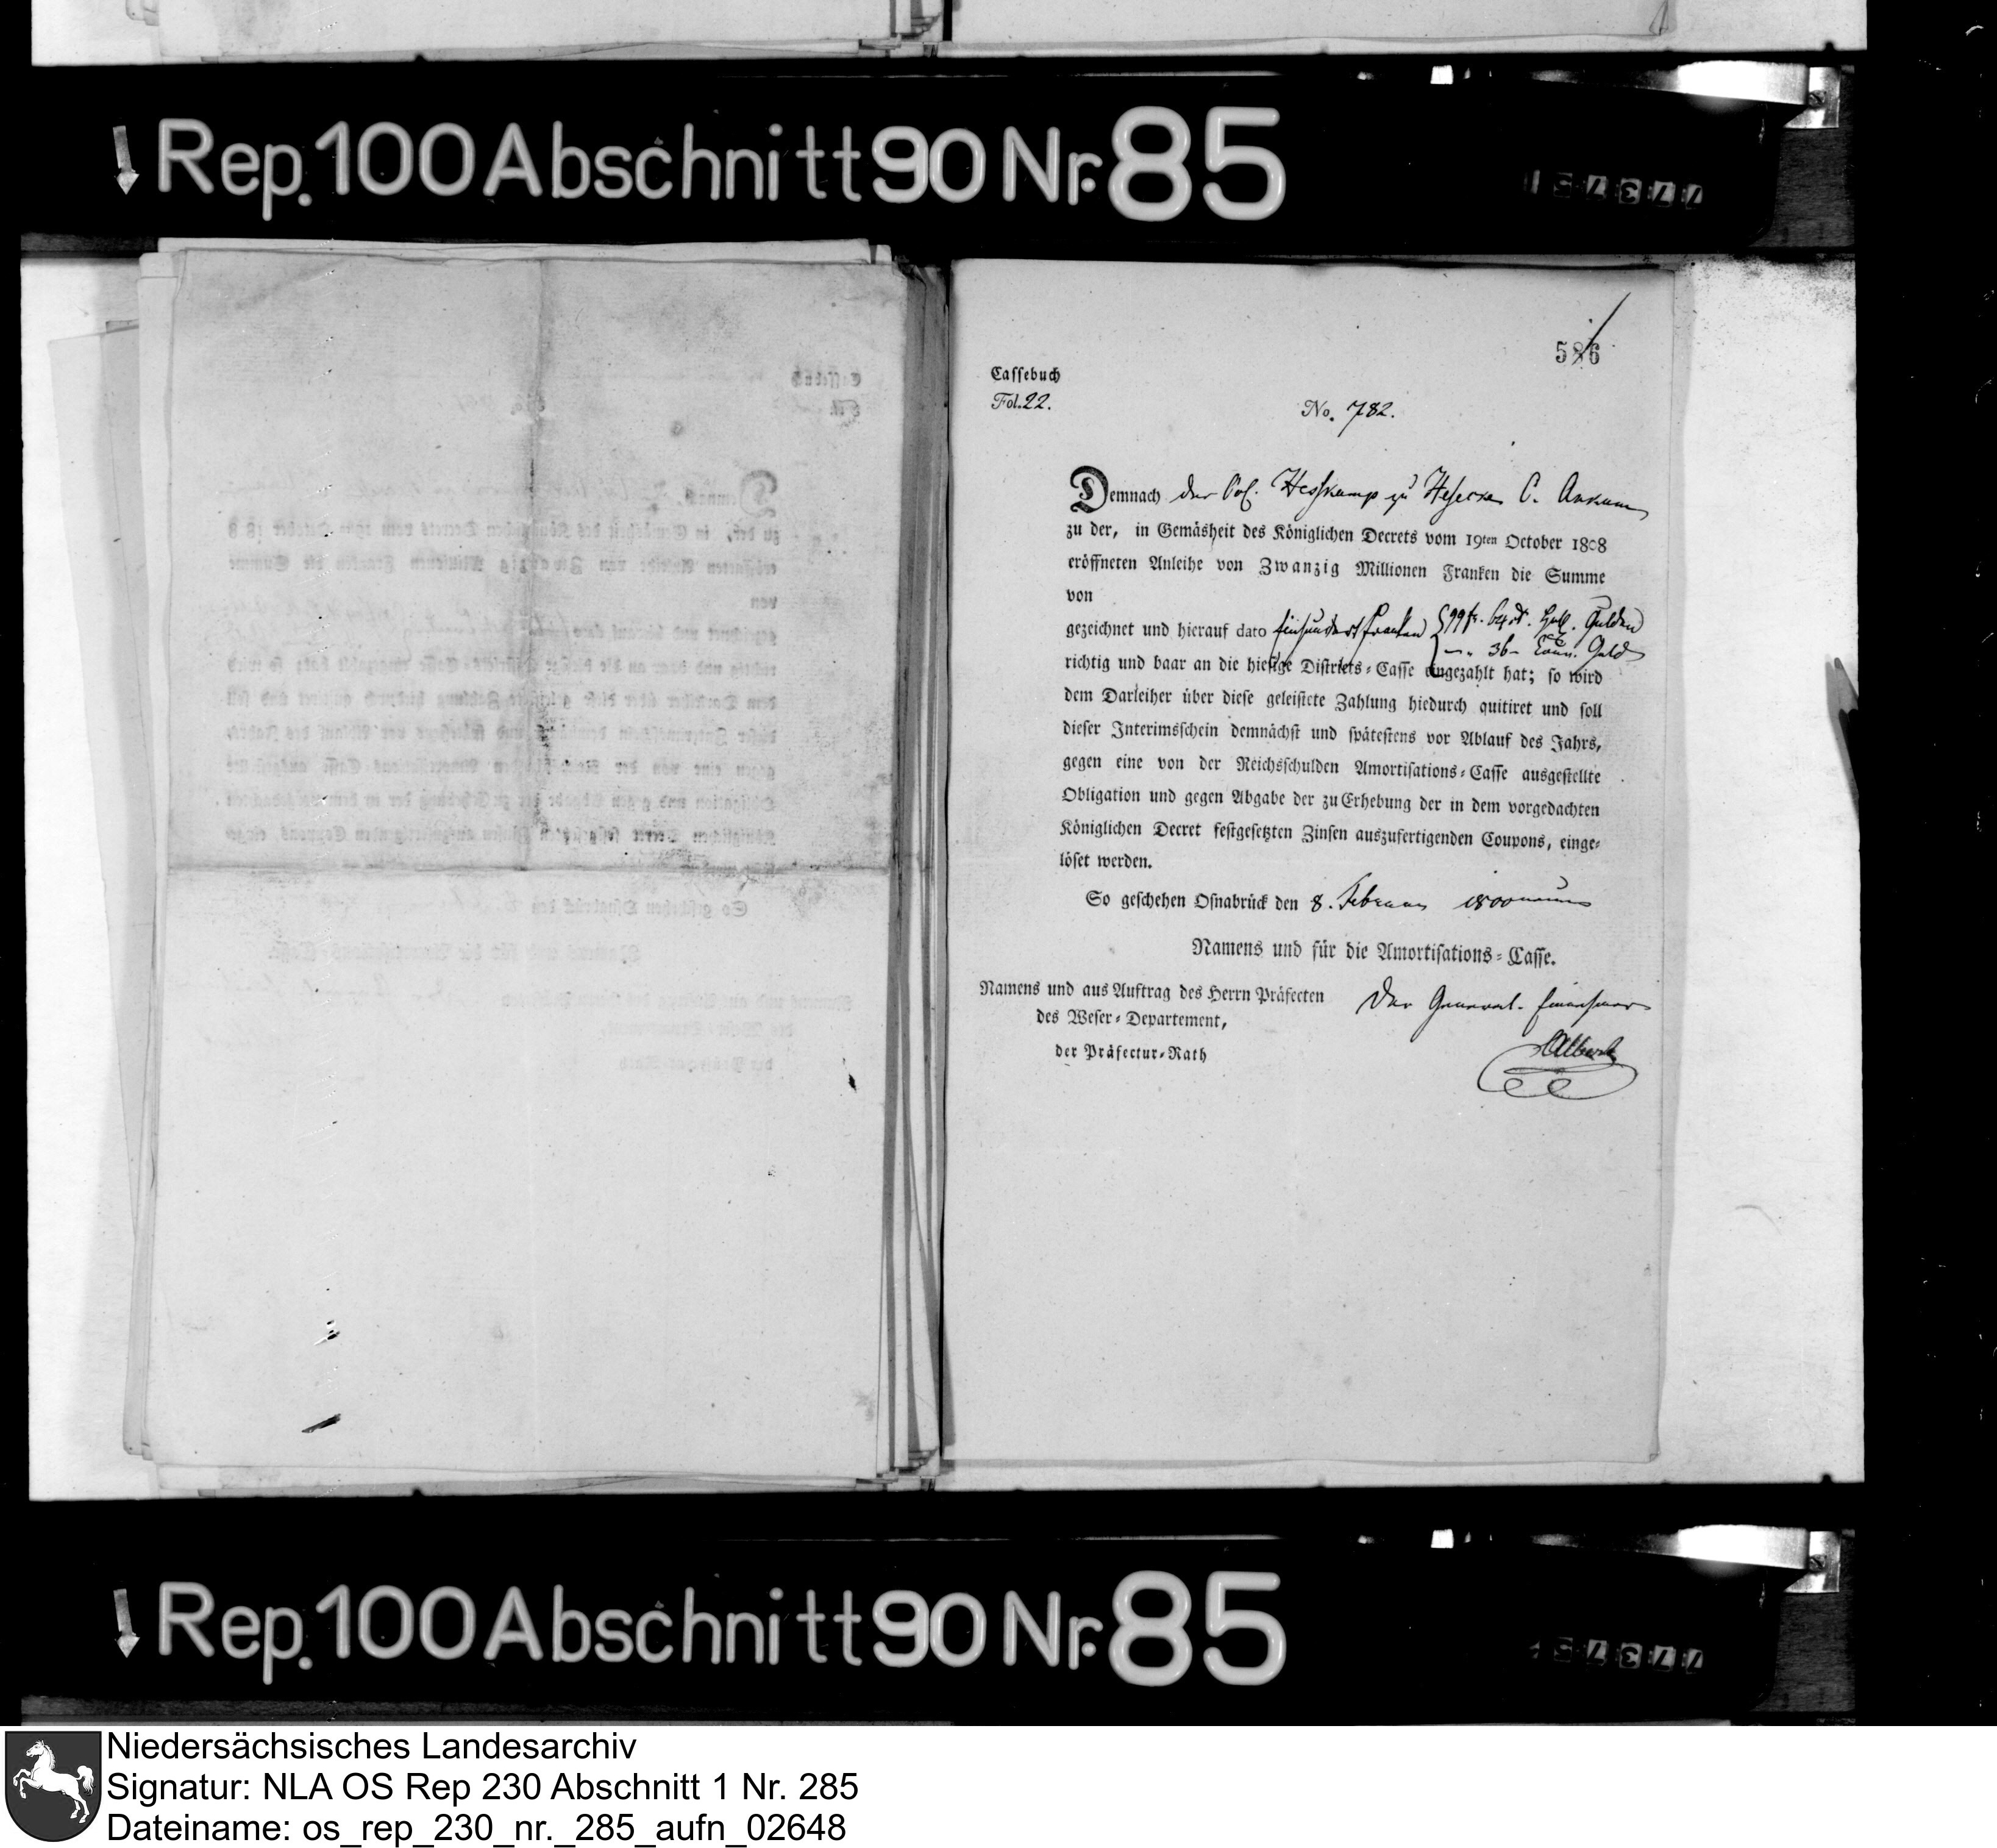 Rep. 100 Abschnitt 90 Nr. 85
586
Cassebuch
Fol. 22.
No. 782.
Demnach der Col. Hesskamp zu Hesecke C. Ankum
zu der, in Gemäsheit des Königlichen Decrets vom 19ten October 1808
eröffneten Anleihe von Zwanzig Millionen Franken die Summe
von
gezeichnet und hierauf dato Einhundert Franken 99 fr. 64 ct. Holl. Gulden
" 36 - Conv. Geld
richtig und baar an die hiesige Districts-Casse eingezahlt hat; so wird
dem Darleiher über diese geleistete Zahlung hiedurch quitiret und soll
dieser Interimsschein demnächst und spätestens vor Ablauf des Jahrs,
gegen eine von der Reichsschulden Amortisations-Casse ausgestellte
Obligation und gegen Abgabe der zu Erhebung der in dem vorgedachten
Königlichen Decret festgesetzten Zinsen auszufertigenden Coupons, einge-
löset werden.
So geschehen Osnabrück den 8. Februar 1800neun
Namens und für die Amortisations-Casse.
Namens und aus Auftrag des Herrn Präfecten
des Weser-Departement,
der Präfectur-Rath
Der General-Einnehmer
Rep. 100 Abschnitt 90 Nr. 85
Niedersächsisches Landesarchiv
Signatur: NLA OS Rep 230 Abschnitt 1 Nr. 285
Dateiname: os_rep_230_nr._285_aufn_02648